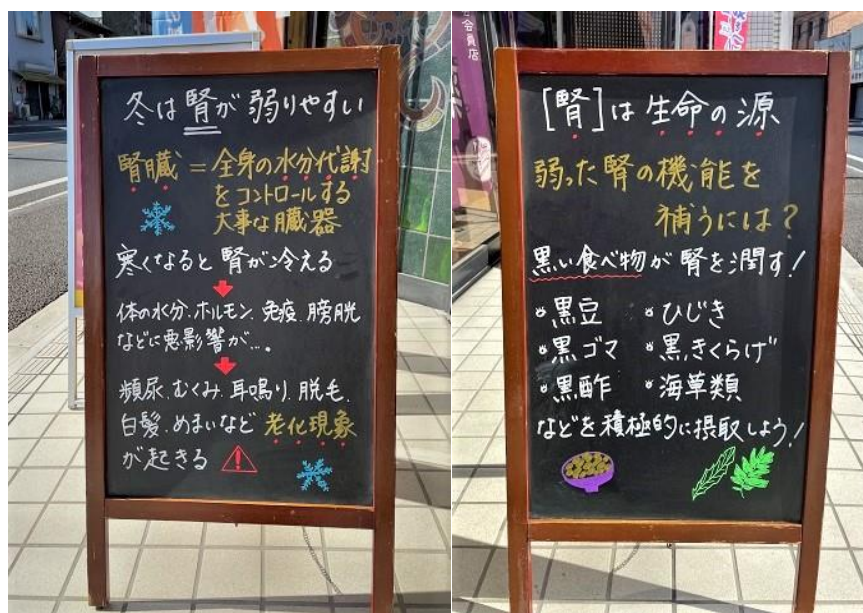 冬は腎が弱りやすい
腎臓=全身の水分代謝
をコントロールする
大事な臓器
寒くなると腎が冷える
体の水分、ホルモン、免疫、膀胱
などに悪影響が…。
頻尿、むくみ、耳鳴り、脱毛、
白髪、めまいなど老化現象
が起きる
会員店
[腎]は生命の源
弱った腎の機能を
補うには?
黒い食べ物が腎を潤す!
黒豆 ひじき
黒ゴマ 黒きくらげ
黒酢 海草類
などを積極的に摂取しよう!